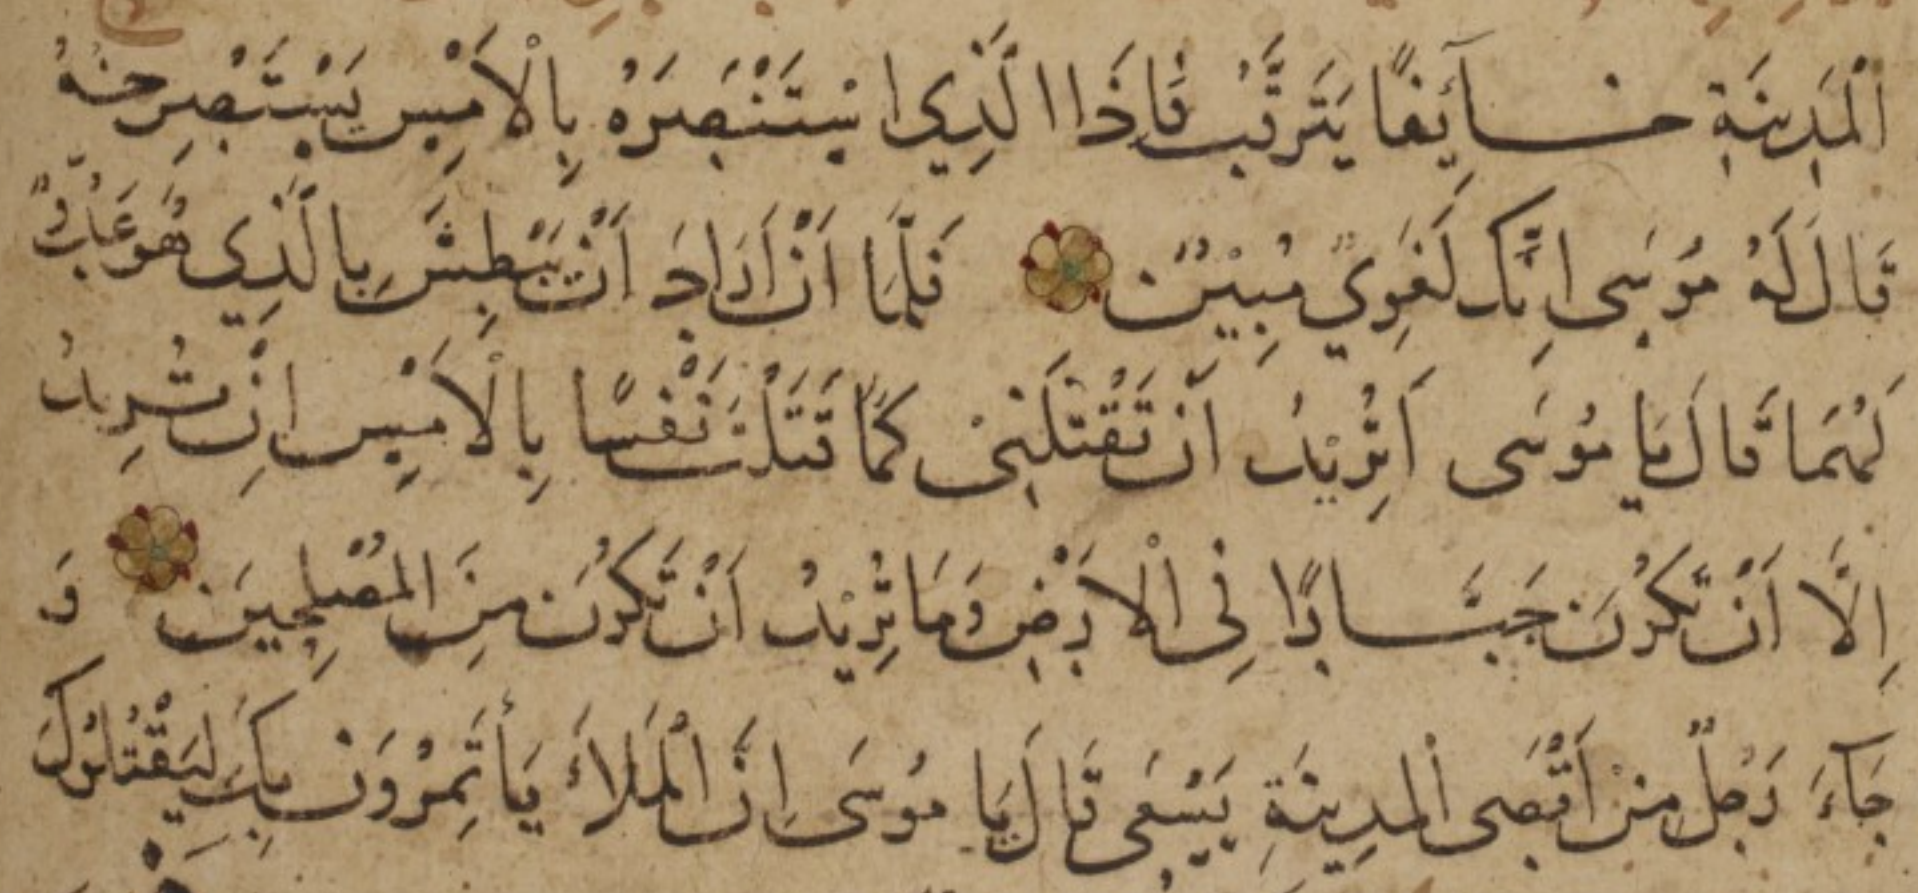 ٱلْمَدِينَةِ خَآئِفًا يَتَرَقَّبُ فَإِذَا الَّذِي اسْتَنْصَرَهُ بِالْأَمْسِ يَسْتَصْرِخُهُ
قَالَ لَهُ مُوسَى إِنَّكَ لَغَوِيٌّ مُبِيْنٌ فَلَمَّا أَنْ أَرَادَ أَنْ يَبْطِشَ بِالَّذِي هُوَ عَدُوٌّ
لَهُمَا قَالَ يَا مُوسَى أَتُرِيْدُ أَنْ تَقْتُلَنِيْ كَمَا قَتَلْتَ نَفْسًا بِالْأَمْسِ إِنْ تُرِيدُ
إِلَّا أَنْ تَكُونَ جَبَّارًا فِي الْأَرْضِ وَمَا تُرِيْدُ أَنْ تَكُونَ مِنَ الْمُصْلِحِينَ وَ
جَآءَ رَجُلٌ مِنْ أَقْصَى الْمَدِينَةِ يَسْعَى قَالَ يَا مُوسَى إِنَّ الْمَلَأَ يَأْتَمِرُونَ بِكَ لِيَقْتُلُوكَ